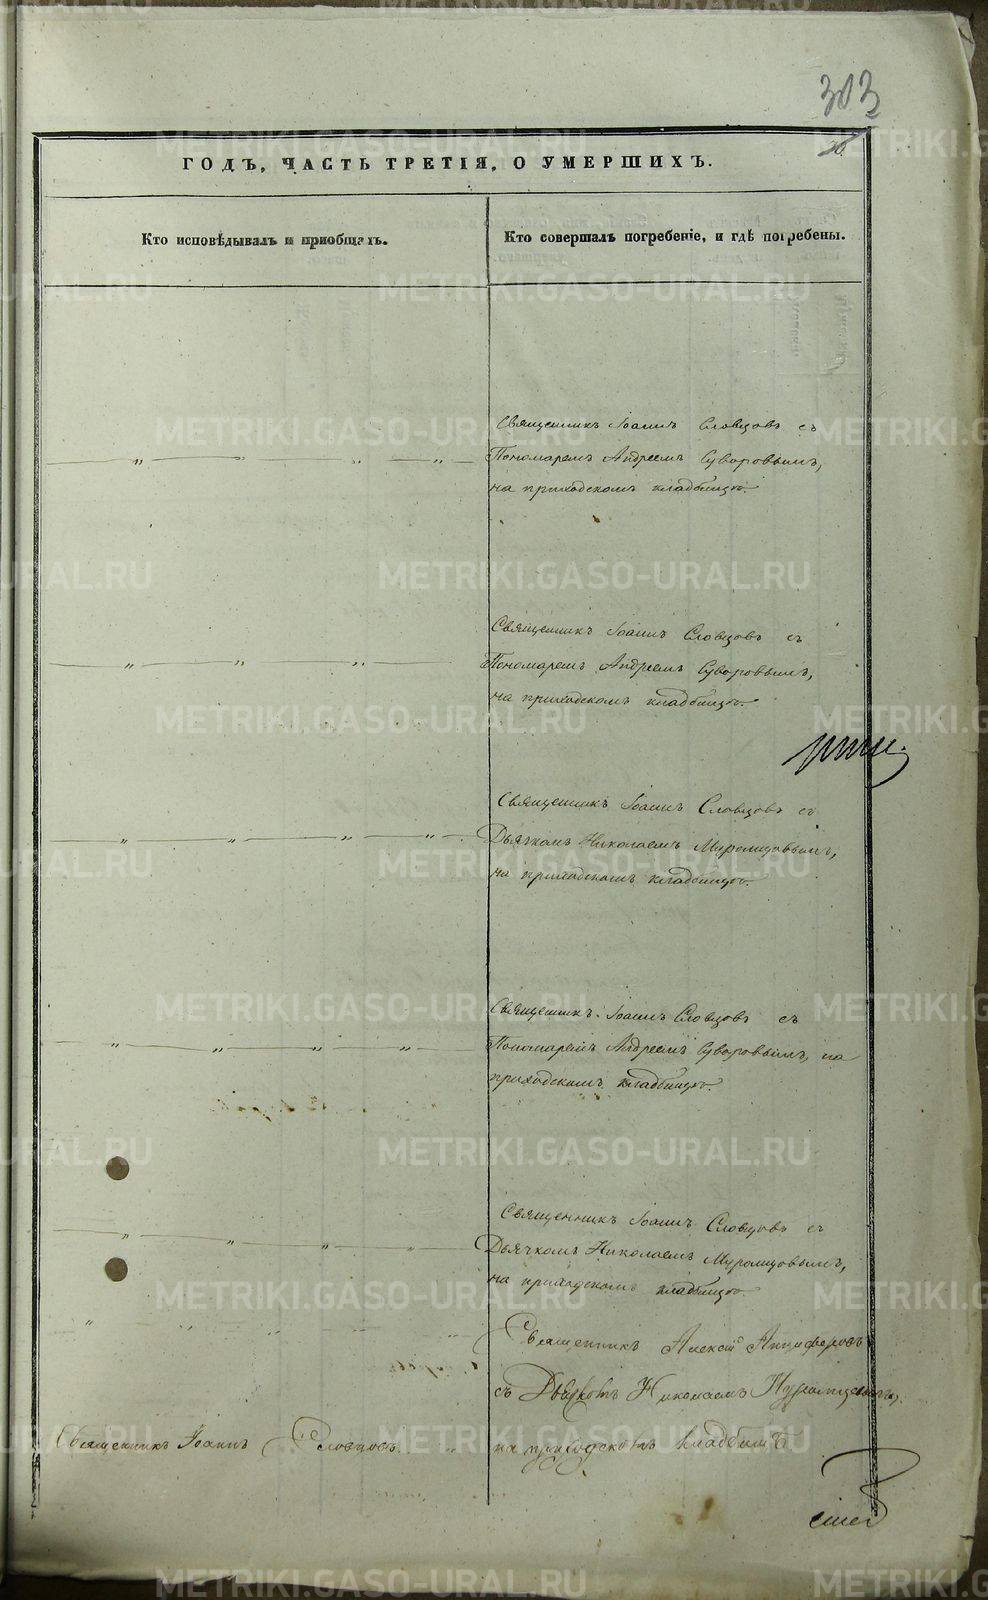 303
ГОДЪ, ЧАСТЬ ТРЕТІЯ, О УМЕРШИХЪ.
Кто исповѣдывалъ и приобщалъ.
Кто совершалъ погребеніе, и гдѣ погребены.
Священникъ Іоаннъ Словцовъ съ
Пономаремъ Андреемъ Суворовымъ,
на приходскомъ кладбищѣ.
Священникъ Іоаннъ Словцовъ съ
Пономаремъ Андреемъ Суворовымъ,
на приходскомъ кладбищѣ.
Священникъ Іоаннъ Словцовъ съ
Дьячкомъ Николаемъ Муромцовымъ,
на приходскомъ кладбищѣ.
Священникъ Іоаннъ Словцовъ съ
Пономаремъ Андреемъ Суворовымъ, на
приходскомъ кладбищѣ.
Священникъ Іоаннъ Словцовъ съ
Дьячкомъ Николаемъ Муромцовымъ,
на приходскомъ кладбищѣ.
Священникъ Алексій Анциферовъ
съ Дьячкомъ Николаемъ Муромцовымъ,
Священникъ Іоаннъ Словцовъ
на приходскомъ кладбищѣ.
METRIKI.GASO-URAL.RU